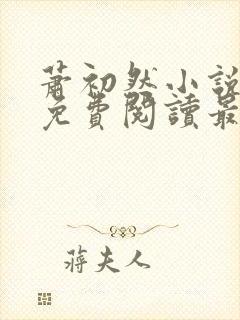 蕭初然小說
免費閱讀最
蔣夫人